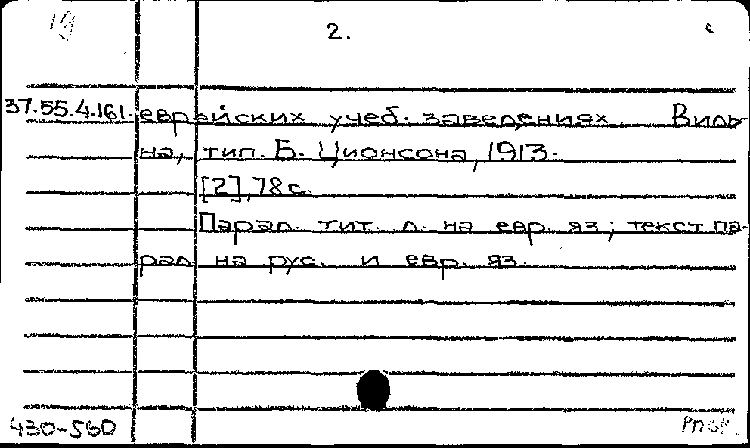 19
2.
37.55.4.161. еврейских учеб. заведениях. Виль-
на, тип. Б. Ционсона, 1913.
[2], 78 с.
Парал. тит. л. на евр. яз; текст па-
рал на рус. и евр. яз.
430-560